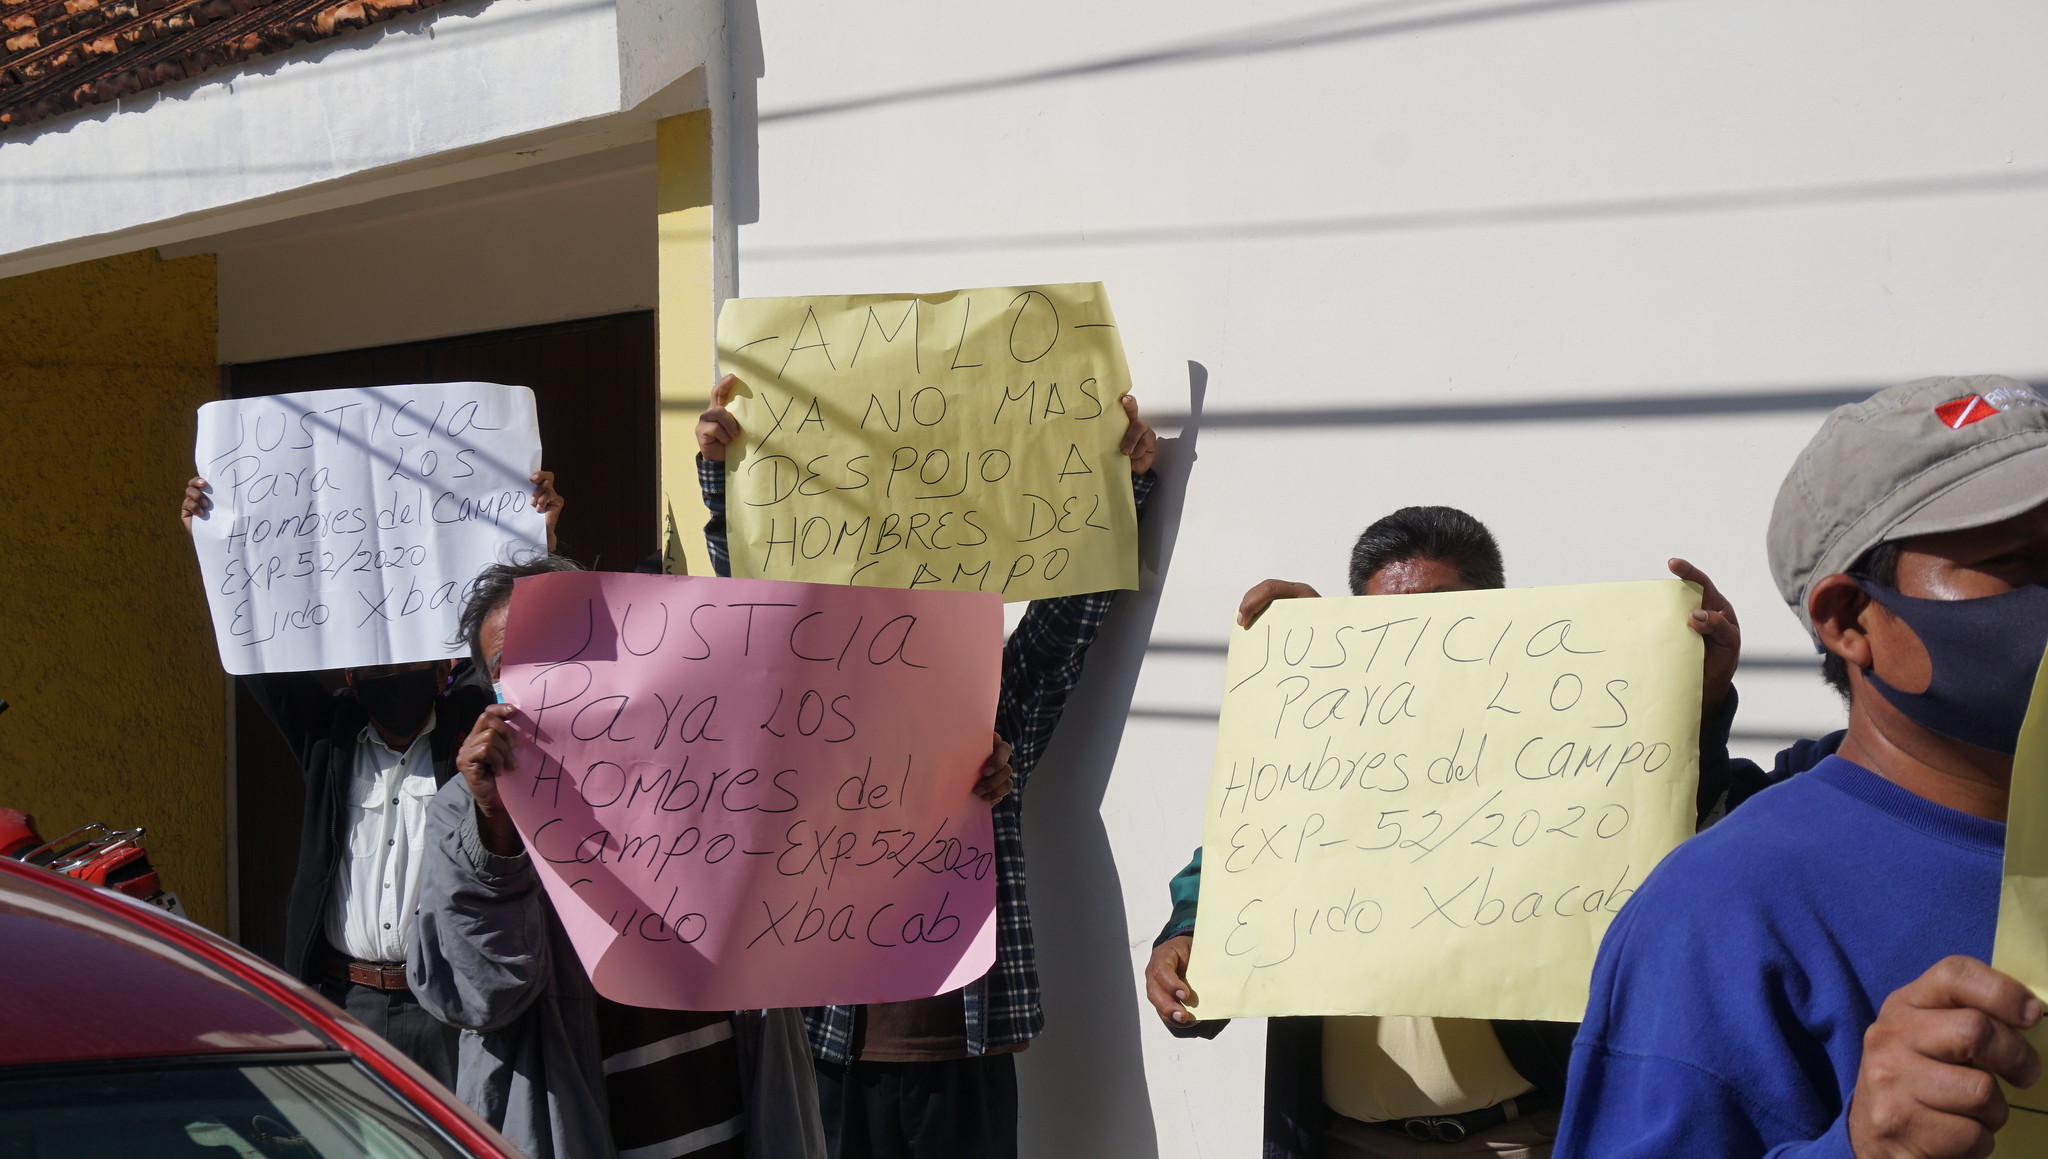 JUSTICIA
Para LOS
Hombres del CAMPO
EXP-52/2020
Ejido
-AMLO-
YA NO MAS
DESPOJO A
HOMBRES DEL
CAMPO
JUSTCIA
Para LOS
HOMbres del
Campo-EXP-52/2020
Ejido Xbacab
JUSTICIa
Para LOS
HOMbres del CAMPO
EXP-52/2020
Ejido Xbacab